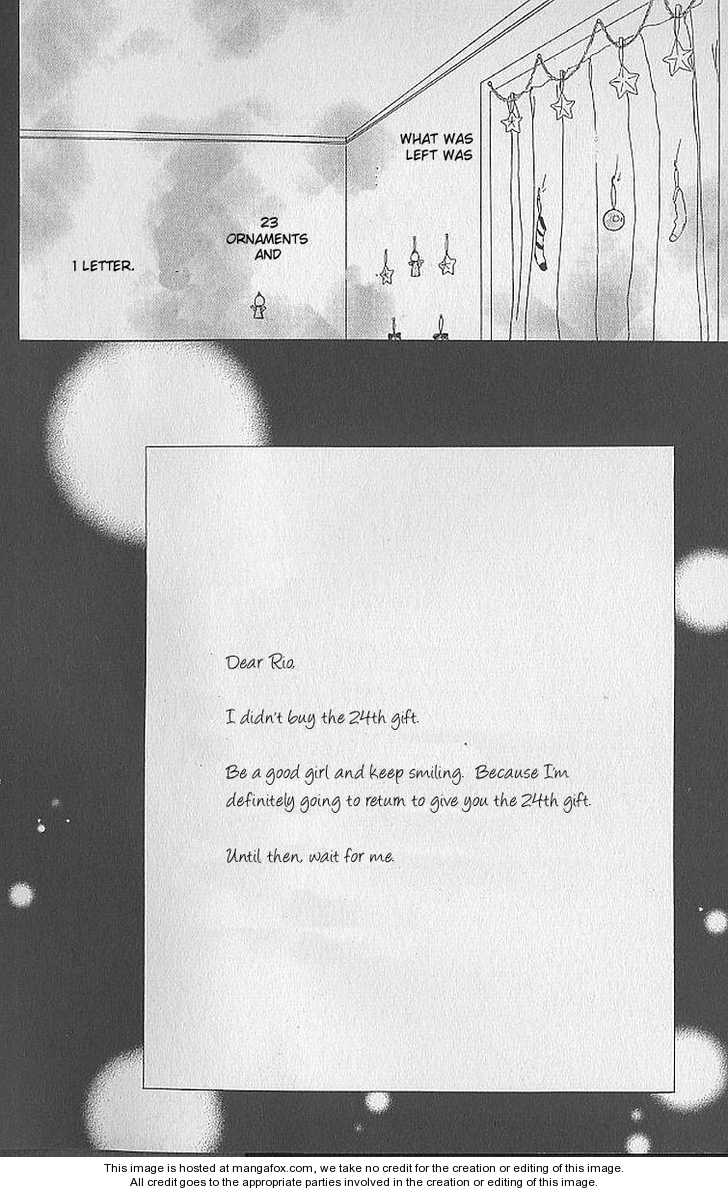 WHAT WAS
LEFT WAS
23
ORNAMENTS
AND
1 LETTER.
Dear Rio,
I didn't buy the 24th gift.
Be a good girl and keep smiling. Because I'm
definitely going to return to give you the 24th gift.
Until then, wait for me.
This image is hosted at mangafox.com, we take no credit for the creation or editing of this image.
All credit goes to the appropriate parties involved in the creation or editing of this image.